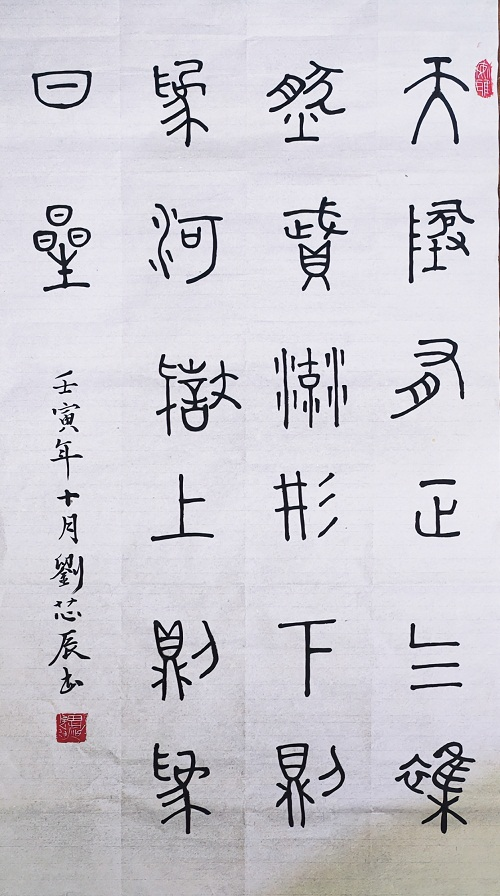 天地有正气雜
然賦流形下則
為河嶽上則為
日星
壬寅年十月劉芯辰书